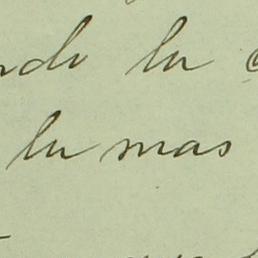 ndo la
la mas